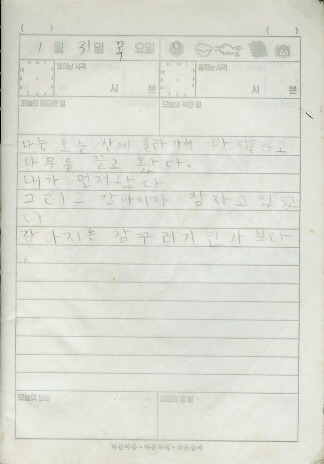 ( ) ( )
1 월 31 일 목 요일
일어난 시각 잠자는 시각
시 분 시 분
오늘의 중요한 일 오늘의 착한 일
나는 오늘 산에 올라가서
나무를 끌고 왔다.
내가 먼저 갔다
그리고 강아지가 잠자고 있었
다
강아지는 잠꾸러기인가 보다
.
오늘의 반성 내일의 할 일